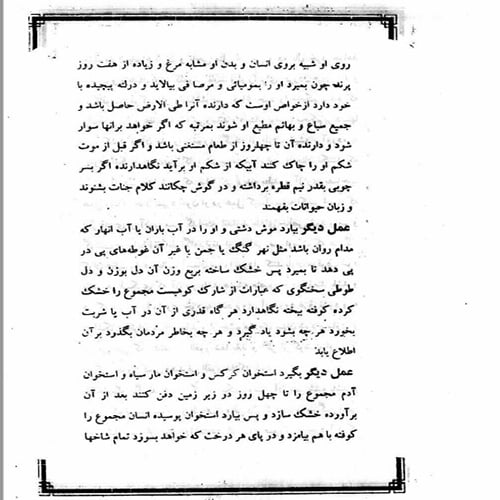 روی او شبیه بروی انسان و بدن او مشابه مرغ و زیاده از هفت روز
پرند چون بمیرد او را بمومیائی و مرصا فی بیالاید و درلته پیچیده با
خود دارد ازخواص اوست که دارنده آنرا طی الارض حاصل باشد و
جمیع سباع و بهائم مطیع او شوند بمرتبه که اگر خواهد برانها سوار
شود و دارنده آن تا چهلروز از طعام مستغنی باشد و اگر قبل از موت
شکم او را چاک کنند آبیکه از شکم او برآید نگاهدارنده اگر بسر
چوبی بقدر نیم قطره برداشته و در گوش چکانند کلام جنات بشنوند
و زبان حیوانات بفهمند
عمل دیگر بیارد موش دشتی و او را در آب باران یا آب انهار که
مدام روان باشد مثل نهر گنگ یا جمن یا غیر آن غوطه‌های پی در
پی دهد تا بمیرد پس خشک ساخته بربع وزن آن دل بوزن و دل
طوطی سخنگوی که عبارات از شارک کوهیست مجموع را خشک
کرده کوفته بیخته نگاهدارد هر گاه قدری از آن در آب یا شربت
بخورد هر چه بشود یاد گیرد و هر چه بخاطر مردمان بگذود برآن
اطلاع یابد
عمل دیگر بگیرد استخوان کرکس و استخوان مار سیاه و استخوان
آدم مجموع را تا چهل روز در زیر زمین دفن کنند بعد از آن
برآورده خشک سازد و پس بیارد استخوان پوسیده انسان مجموع را
کوفته با هم بیامزد و در پای هر درخت که خواهد بسوزد تمام شاخها